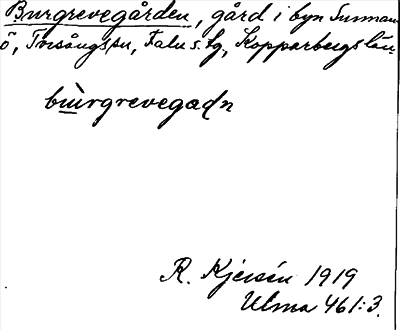 Burgrevegården, gård i byn Sunnan
ö, Torsångs sn, Falu s. tg, Kopparbergs län.
bùrgrevegadn
R. Kjersén 1919
Ulma 461:3.